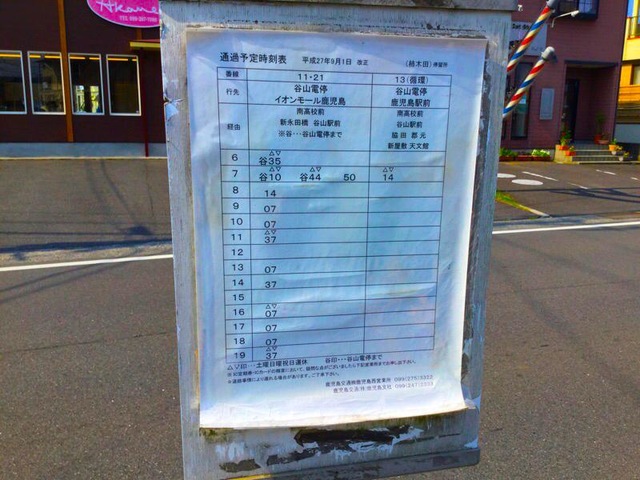 Akane
TEL
通過予定時刻表 平成27年9月1日 改正 (柿木田)停留所
番線 11・21 13(循環)
行先 谷山電停 谷山電停
イオンモール鹿児島 鹿児島駅前
経由 南高校前 南高校前
新永田橋 谷山駅前 谷山駅前
※谷…谷山電停まで 脇田 郡元
新屋敷 天文館
6 △▽谷35
7 △▽谷10 △▽谷44 50 △▽14
8 14
9 07
10 07
11 △▽37
12
13 07
14 37
15
16 △▽07
17 07
18 07
19 △▽37
△▽印…土曜日曜祝日運休 谷印…谷山電停まで
※道路事情により遅れる場合があります。ご了承下さい。